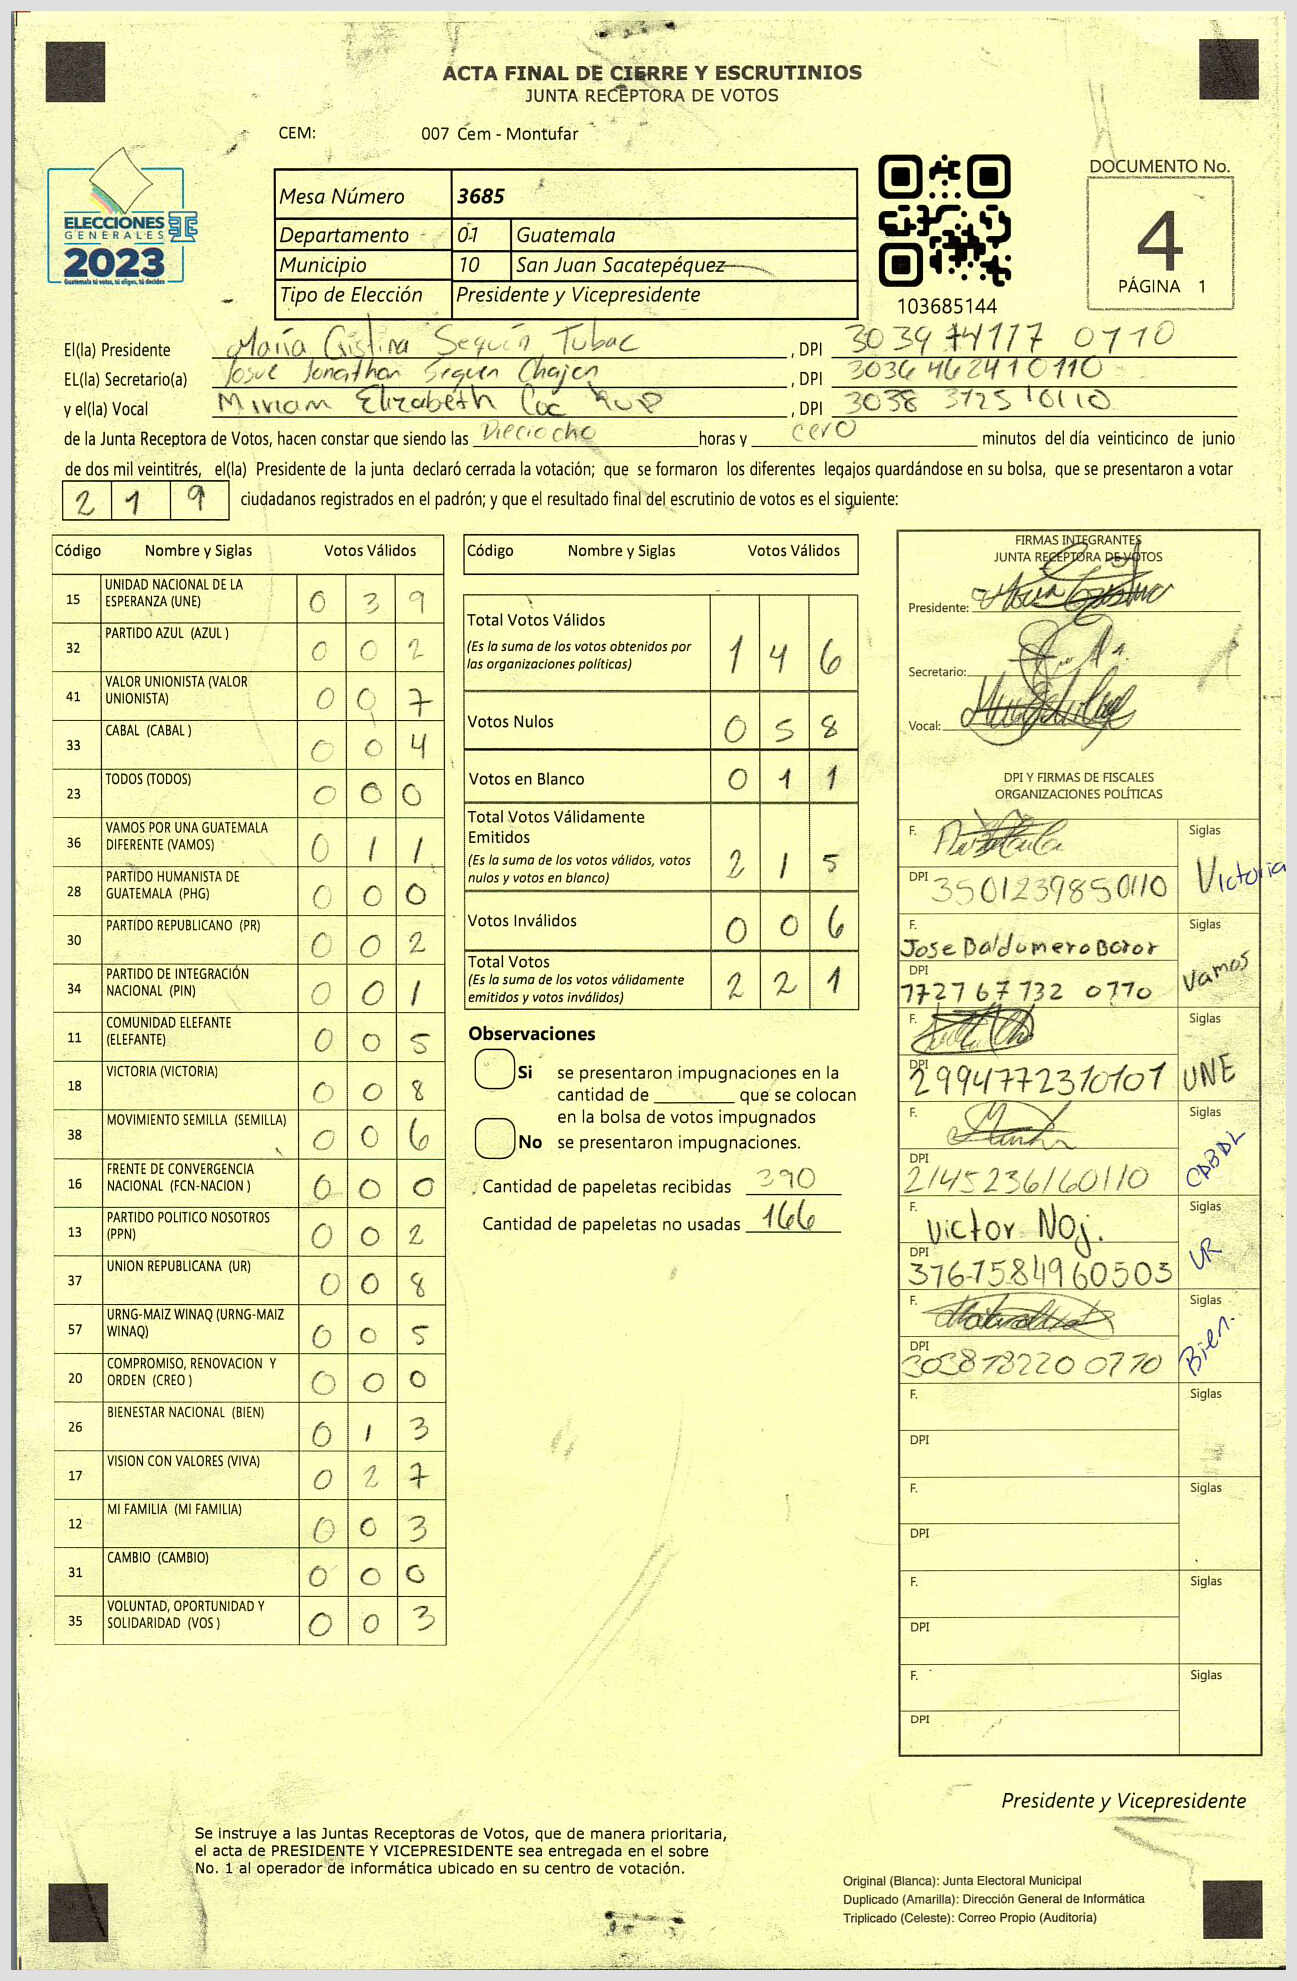 ACTA FINAL DE CIERRE Y ESCRUTINIOS
JUNTA RECEPTORA DE VOTOS
CEM: 007 Cem - Montufar
ELECCIONES
GENERALES
2023
Guatemala tú votas, tú eliges, tú decides
Mesa Número 3685
Departamento 01 Guatemala
Municipio 10 San Juan Sacatepéquez
Tipo de Elección Presidente y Vicepresidente
103685144
DOCUMENTO No.
4
PÁGINA 1
El(la) Presidente María Cristina Sequén Tubac, DPI 3039 74177 0110
EL(la) Secretario(a) Josue Jonathan Sequen Chajon, DPI 3036 46241 0110
y el(la) Vocal Miriam Elizabeth Coc, DPI 3038 37251 0110
de la Junta Receptora de Votos, hacen constar que siendo las Dieciocho horas y cero minutos del día veinticinco de junio
de dos mil veintitrés, el(la) Presidente de la junta declaró cerrada la votación; que se formaron los diferentes legajos guardándose en su bolsa, que se presentaron a votar
2 1 9 ciudadanos registrados en el padrón; y que el resultado final del escrutinio de votos es el siguiente:
Código Nombre y Siglas Votos Válidos
15 UNIDAD NACIONAL DE LA ESPERANZA (UNE) 0 3 9
32 PARTIDO AZUL (AZUL ) 0 0 2
41 VALOR UNIONISTA (VALOR UNIONISTA) 0 0 7
33 CABAL (CABAL ) 0 0 4
23 TODOS (TODOS) 0 0 0
36 VAMOS POR UNA GUATEMALA DIFERENTE (VAMOS) 0 1 1
28 PARTIDO HUMANISTA DE GUATEMALA (PHG) 0 0 0
30 PARTIDO REPUBLICANO (PR) 0 0 2
34 PARTIDO DE INTEGRACIÓN NACIONAL (PIN) 0 0 1
11 COMUNIDAD ELEFANTE (ELEFANTE) 0 0 5
18 VICTORIA (VICTORIA) 0 0 8
38 MOVIMIENTO SEMILLA (SEMILLA) 0 0 6
16 FRENTE DE CONVERGENCIA NACIONAL (FCN-NACION ) 0 0 0
13 PARTIDO POLITICO NOSOTROS (PPN) 0 0 2
37 UNION REPUBLICANA (UR) 0 0 8
57 URNG-MAIZ WINAQ (URNG-MAIZ WINAQ) 0 0 5
20 COMPROMISO, RENOVACION Y ORDEN (CREO ) 0 0 0
26 BIENESTAR NACIONAL (BIEN) 0 1 3
17 VISION CON VALORES (VIVA) 0 2 7
12 MI FAMILIA (MI FAMILIA) 0 0 3
31 CAMBIO (CAMBIO) 0 0 0
35 VOLUNTAD, OPORTUNIDAD Y SOLIDARIDAD (VOS ) 0 0 3
Código Nombre y Siglas Votos Válidos
Total Votos Válidos 1 4 6
(Es la suma de los votos obtenidos por
las organizaciones políticas)
Votos Nulos 0 5 8
Votos en Blanco 0 1 1
Total Votos Válidamente
Emitidos 2 1 5
(Es la suma de los votos válidos, votos
nulos y votos en blanco)
Votos Inválidos 0 0 6
Total Votos 2 2 1
(Es la suma de los votos válidamente
emitidos y votos inválidos)
Observaciones
Si se presentaron impugnaciones en la
cantidad de ________ que se colocan
en la bolsa de votos impugnados
No se presentaron impugnaciones.
Cantidad de papeletas recibidas 390
Cantidad de papeletas no usadas 166
FIRMAS INTEGRANTES
JUNTA RECEPTORA DE VOTOS
Presidente:
Secretario:
Vocal:
DPI Y FIRMAS DE FISCALES
ORGANIZACIONES POLÍTICAS
F. Siglas Victoria
DPI 3501239850110
F. Jose Baldomero Boror Siglas Vamos
DPI 1727 67 732 0110
F. Siglas UNE
DPI 2994772310101
F. Siglas
DPI 2145236160110
F. Victor Noj. Siglas UR
DPI 3767584960503
F. Siglas Bien.
DPI 303818220 0110
F. Siglas
DPI
F. Siglas
DPI
F. Siglas
DPI
F. Siglas
DPI
Presidente y Vicepresidente
Se instruye a las Juntas Receptoras de Votos, que de manera prioritaria,
el acta de PRESIDENTE Y VICEPRESIDENTE sea entregada en el sobre
No. 1 al operador de informática ubicado en su centro de votación.
Original (Blanca): Junta Electoral Municipal
Duplicado (Amarilla): Dirección General de Informática
Triplicado (Celeste): Correo Propio (Auditoría)